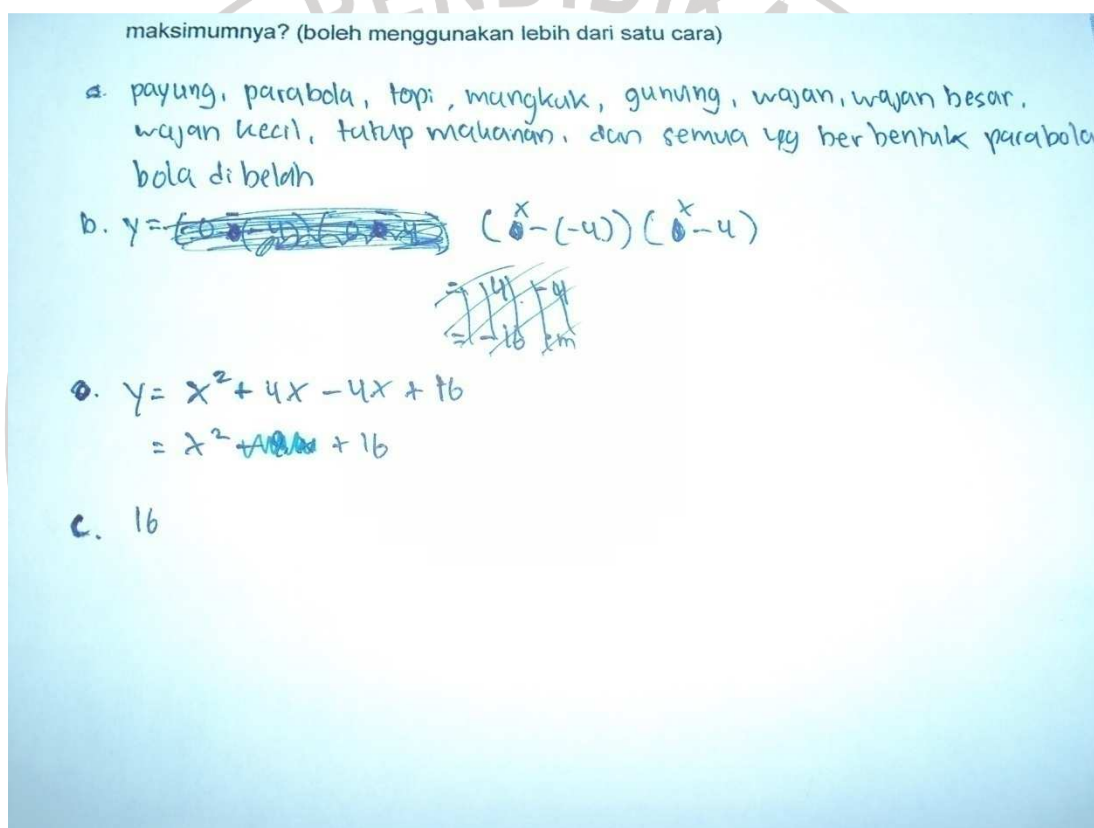 PENDIDIKA
maksimumnya? (boleh menggunakan lebih dari satu cara)
a. payung, parabola, topi, mangkuk, gunung, wajan, wajan besar,
wajan kecil, tutup makanan, dan semua yg berbentuk parabola
bola dibelah
b. y = (x-(-4))(x-4)
= 4) . -4
= -16 cm
y = x² + 4x - 4x + 16
= x² + 16
c. 16